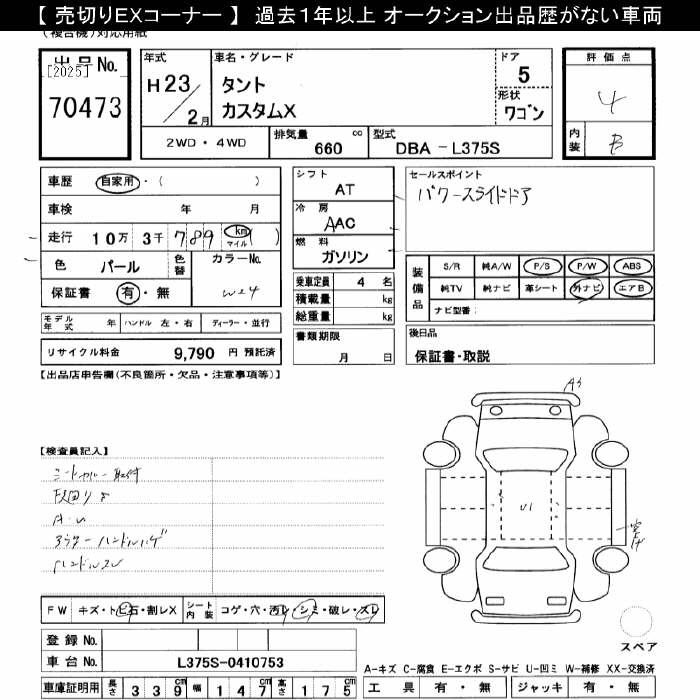 【 売切りEXコーナー 】 過去１年以上 オークション出品歴がない車両
(複合機)対応用紙
出 品 No.
[2025]
70473
年式
H 23
2 月
車名・グレード
タント
カスタムX
ドア
5
形状
ワゴン
評 価 点
4
内装
B
2WD ・ 4WD
排気量
660 cc
型式
DBA －L375S
車歴 自家用・( )
車検 年 月
走行 10万 3千 789 km マイル ( )
色 パール 色替 カラーNo.
保証書 有・無 W24
シフト
AT
冷 房
AAC
燃 料
ガソリン
乗車定員 4 名
積載量 kg
総重量 kg
セールスポイント
パワースライドドア
装備品
S/R 純A/W P/S P/W ABS
純TV 純ナビ 革シート 外ナビ エアB
ナビ型番:
モデル年 式 年 ハンドル 左・右 ディーラー・並行
リサイクル料金 9,790 円 預託済
書類期限
月 日
後日品
保証書・取説
【出品店申告欄(不良箇所・欠品・注意事項等)】
A3
【検査員記入】
シートカバー取付
A・U
ハンドルスレ
U1
FW キズ・トビ石・割レX シート内装 コゲ・穴・汚レ・シミ・破レ・スレ
登 録 No.
車 台 No. L375S-0410753
スペア
A−キズ C−腐食 E−エクボ S−サビ U−凹ミ W−補修 XX−交換済
車庫証明用 長さ 3 3 9 cm 幅 1 4 7 cm 高さ 1 7 5 cm
工 具 有・無 ジャッキ 有・無